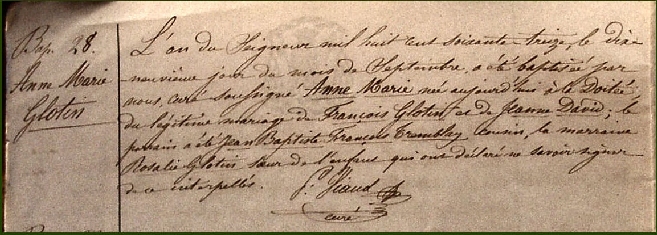 Bap. 28.
Anne Marie
Glotin
L'an du Seigneur mil huit cent soixante treize, le dix
neuvième jour du mois de Septembre, a été baptisée par
nous, curé soussigné Anne Marie née aujourd'hui à la
du légitime mariage de François Glotin, et de Jeanne David; le
parrain a été Jean Baptiste François Tremblay cousin, la marraine
Rosalie Glotin sœur de l'enfant qui ont déclaré ne savoir signer
de ce interpellés.
curé